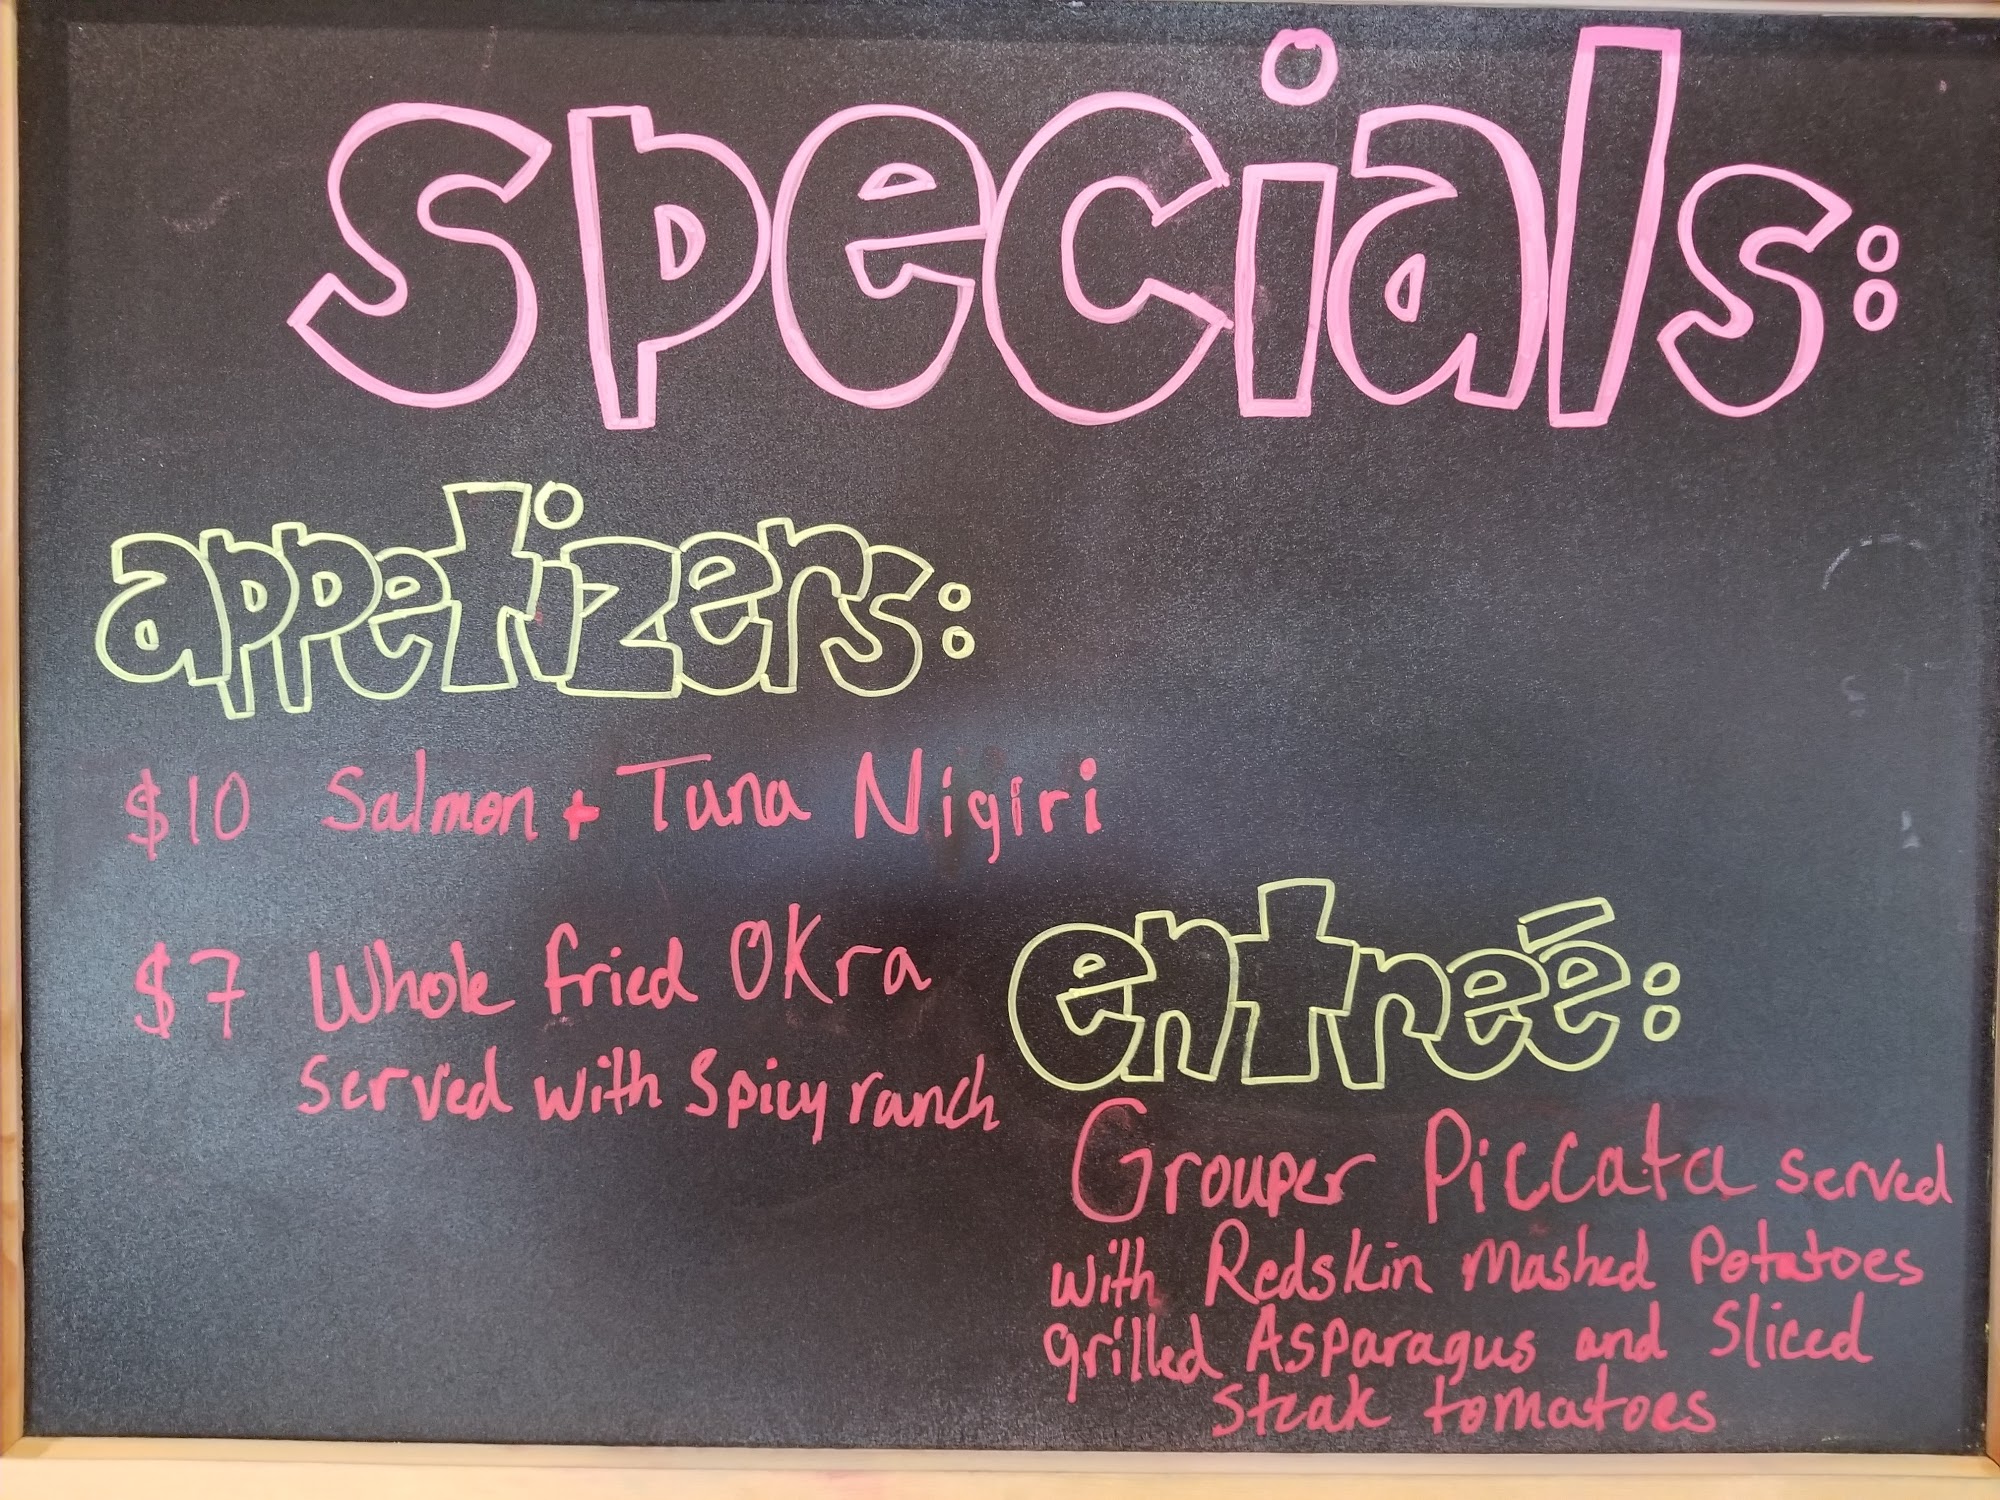 specials:
appetizers:
$10 Salmon + Tuna Nigiri
$7 Whole fried OKra
Served with Spicy ranch
entreē:
Grouper Piccata served
with Redskin mashed Potatoes
grilled Asparagus and Sliced
Steak tomatoes